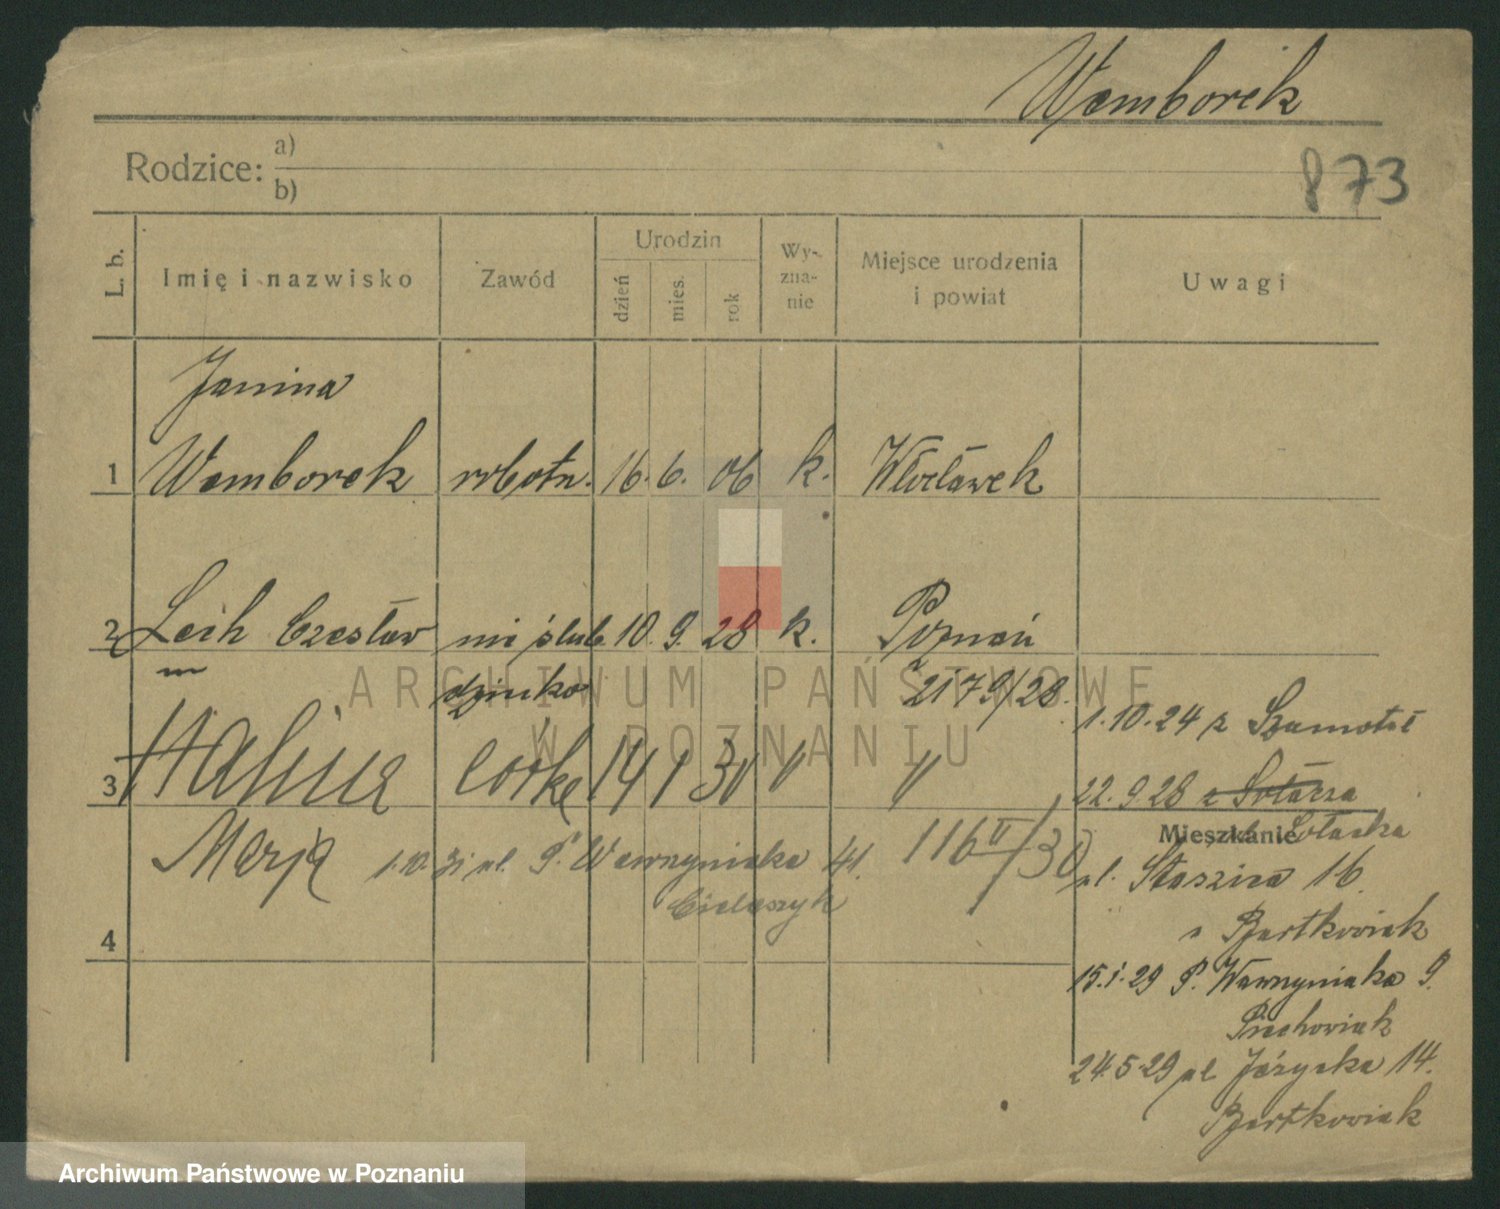 Wamborek
873
Rodzice: a)
b)
L. b. Imię i nazwisko Zawód Urodzin dzień mies. rok Wy-zna-nie Miejsce urodzenia i powiat Uwagi
Janina
1 Wamborek robotn. 16. 6. 06 k. Włocławek
2 Lech Czesław nieślub. 10. 9. 28 k. Poznań
dziecko 2179/28.
1.10.24 z Szamotuł
3 Halina córka 14 1 30 " "
22.9.28 z Sołacza
Mieszkanie
Marja 1.10.31 ul. P. Wawrzyniaka 41. 116 II/30
ul. Staszica 16
Cieluszyk
4
Bartkowiak
15.1.29 P. Wawrzyniaka 9.
Piechowiak
24.5.29 ul. Jeżycka 14.
Bartkowiak
ARCHIWUM PAŃSTWOWE
W POZNANIU
Archiwum Państwowe w Poznaniu